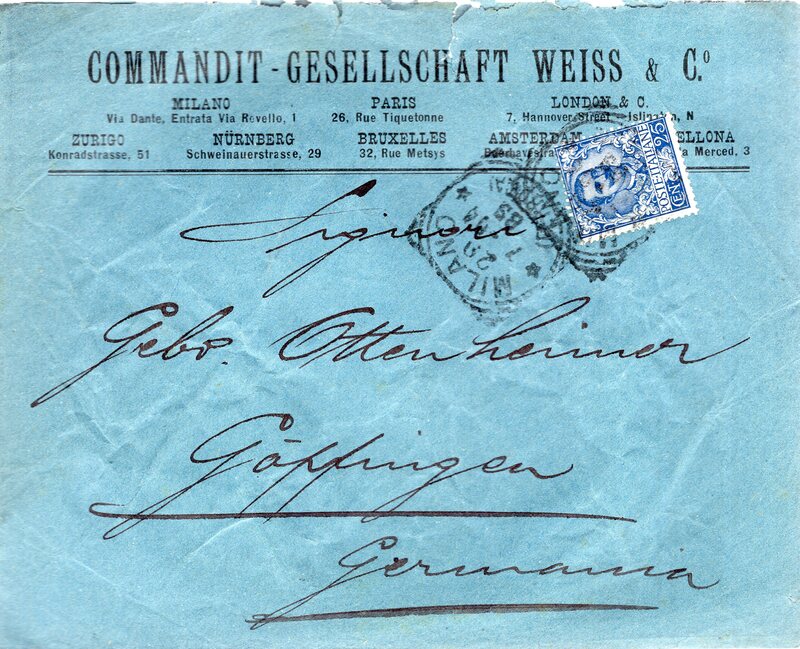 COMMANDIT-GESELLSCHAFT WEISS & C.º
MILANO PARIS LONDON & C.
Via Dante, Entrata Via Rovello, 1 26, Rue Tiquetonne 7, Hannover Street N
ZURIGO NÜRNBERG BRUXELLES AMSTERDAM ELLONA
Konradstrasse, 51 Schweinauerstrasse, 29 32, Rue Metsys Merced. 3
POSTE ITALIANE
CEN 25
MILANO
Signori
Gebr. Ottenheimer
Göppingen
Germania